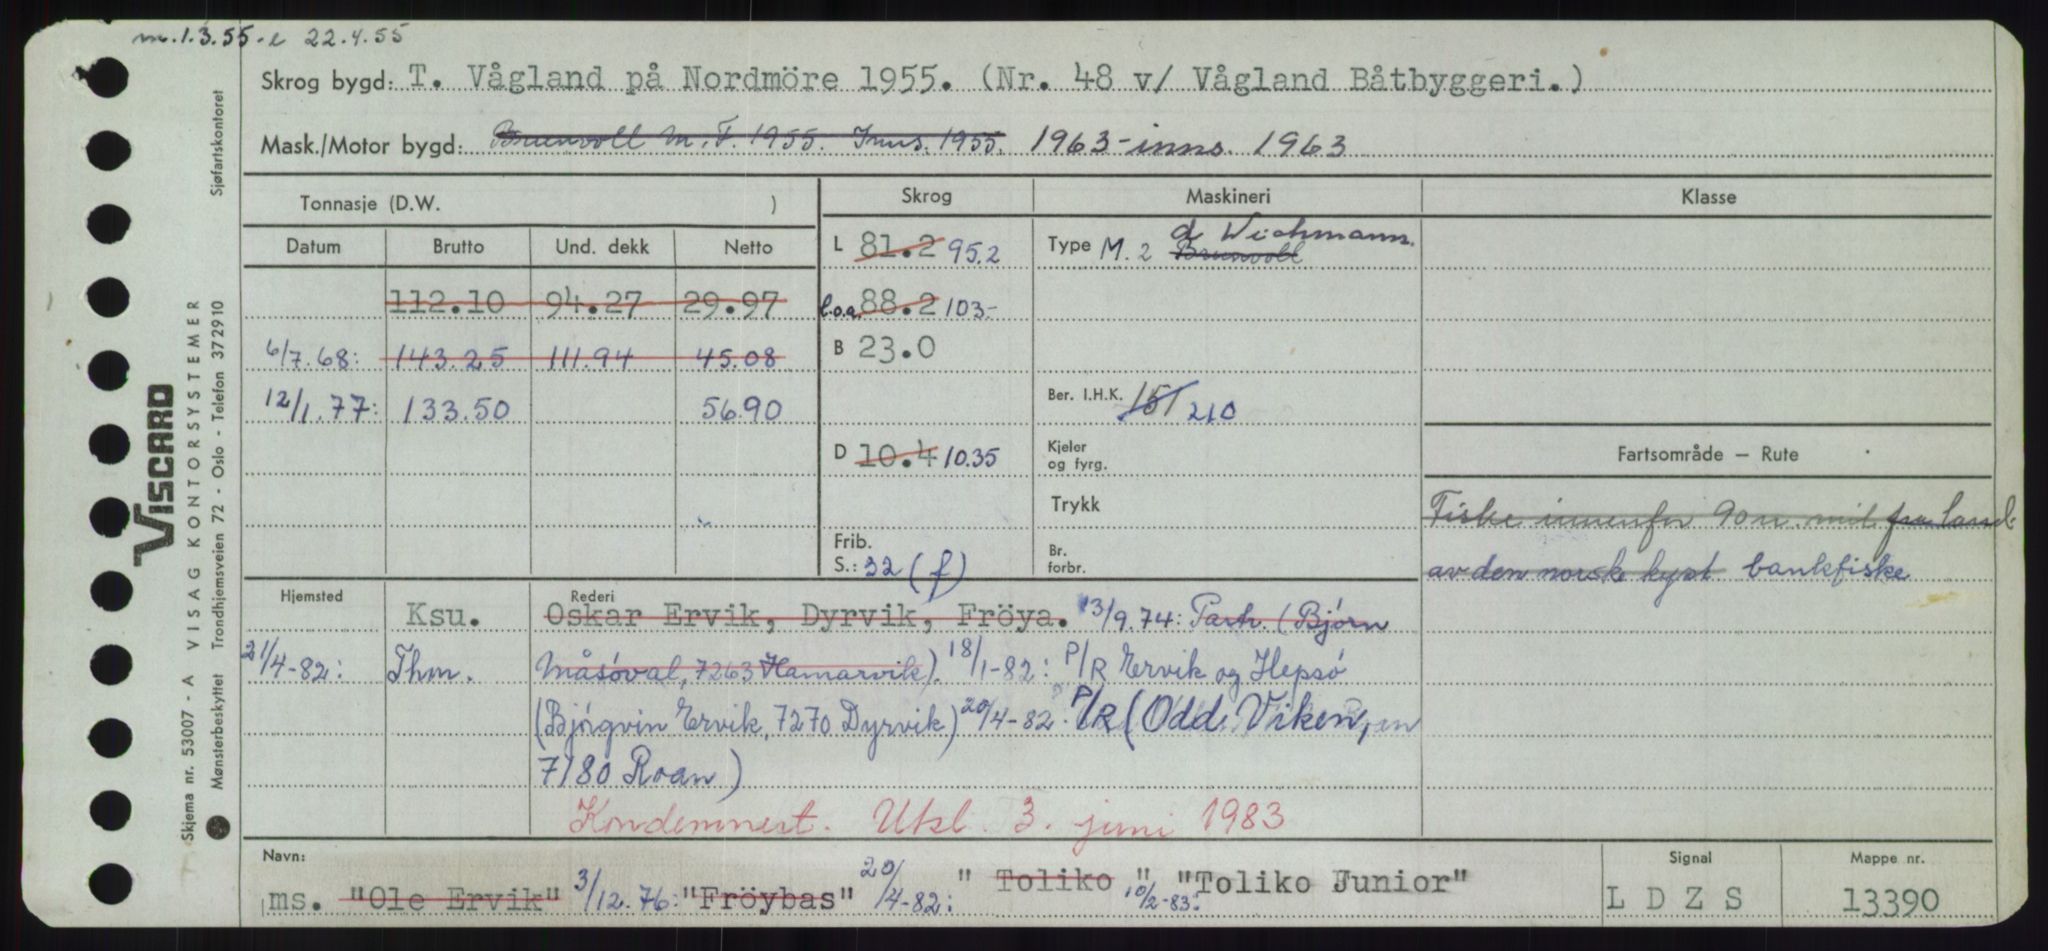 m. 1.3.55. e 22.4.55
Skrog bygd: T. Vågland på Nordmöre 1955. (Nr. 48 v/ Vågland Båtbyggeri.)
Mask./Motor bygd: Brunvoll M.F. 1955. Inns. 1955. 1963 - inns. 1963
Tonnasje (D.W. ) Skrog Maskineri Klasse
Datum Brutto Und. dekk Netto L 81.2 95.2 Type M. 2 d Wichmann. Brunvoll
112.10 94.27 29.97 l.o.a. 88.2 103-
6/7.68: 143.25 111.94 45.08 B 23.0
12/1.77: 133.50 56.90 Ber. I.H.K. 151 210
D 10.4 10.35 Kjeler og fyrg. Fartsområde — Rute
Trykk Fiske innenfor 90 n. mil fra land
Frib. S.: 32 (f) Br. forbr. av den norske kyst bankfiske
Hjemsted Rederi
Ksu. Oskar Ervik, Dyrvik, Fröya. 13/9.74: Partr. (Bjørn
21/4-82: Thm. Måsøval, 7263 Hamarvik). 18/1-82: P/R Ervik og Hepsø
(Bjørgvin Ervik, 7270 Dyrvik) 20/4-82. P/R (Odd Viken,
7180 Roan)
Kondemnert. Utsl. 3. juni 1983
Navn: Signal Mappe nr.
ms. "Ole Ervik" 3/12.76: "Fröybas" 20/4-82: "Toliko" 10/2-83: "Toliko Junior" L D Z S 13390
VISCARD
VISAG KONTORSYSTEMER
Skjema nr. 53007 - A
Mønsterbeskyttet Trondhjemsveien 72 - Oslo - Telefon 372910 Sjøfartskontoret